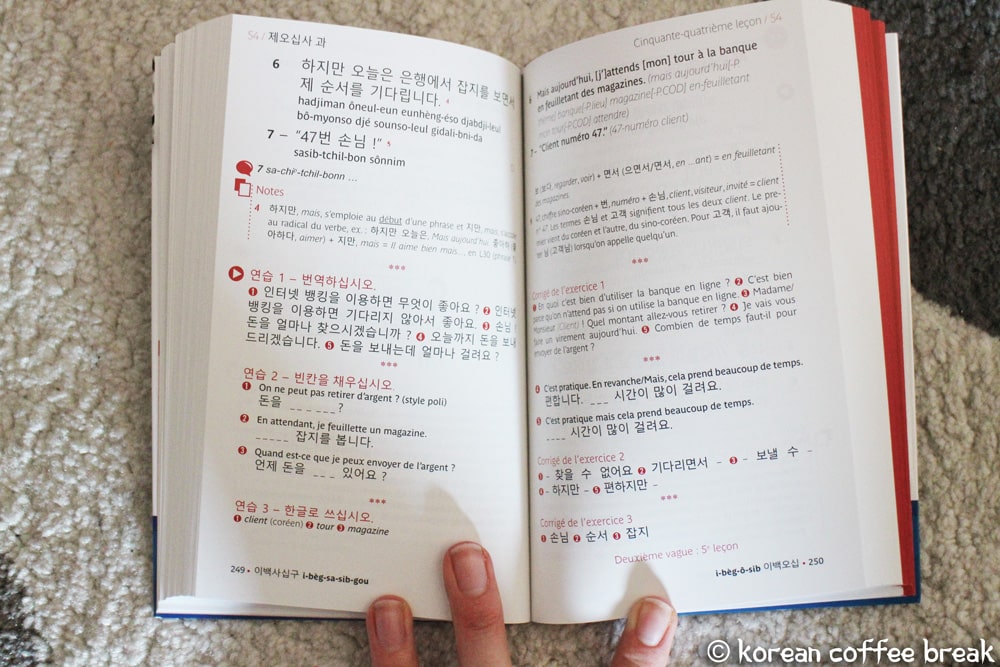 54 / 제오십사 과
6 하지만 오늘은 은행에서 잡지를 보면서
제 순서를 기다립니다. 4
hadjiman ôneul-eun eunhèng-éso djabdji-leul
bô-myonso djé sounso-leul gidali-bni-da
7 – "47번 손님 !" 5
sasib-tchil-bon sônnim
7 sa-chip-tchil-bonn ...
Notes
4 하지만, mais, s'emploie au début d'une phrase et 지만, mais, s'accroche
au radical du verbe, ex. : 하지만 오늘은, Mais aujourd'hui, 좋아하
아하다, aimer) + 지만, mais = Il aime bien mais..., en L30 (phrase
***
연습 1 – 번역하십시오.
❶ 인터넷 뱅킹을 이용하면 무엇이 좋아요 ? ❷ 인터넷
뱅킹을 이용하면 기다리지 않아서 좋아요. ❸ 손님
돈을 얼마나 찾으시겠습니까 ? ❹ 오늘까지 돈을 보내
드리겠습니다. ❺ 돈을 보내는데 얼마나 걸려요 ?
***
연습 2 – 빈칸을 채우십시오.
❶ On ne peut pas retirer d'argent ? (style poli)
돈을 _ _ _ _ _ _ ?
❷ En attendant, je feuillette un magazine.
_ _ _ _ _ 잡지를 봅니다.
❸ Quand est-ce que je peux envoyer de l'argent ?
언제 돈을 _ _ _ 있어요 ?
***
연습 3 – 한글로 쓰십시오.
❶ client (coréen) ❷ tour ❸ magazine
249 • 이백사십구 i-bèg-sa-sib-gou
Cinquante-quatrième leçon / 54
6 Mais aujourd'hui, [j']attends [mon] tour à la banque
en feuilletant des magazines. (mais aujourd'hui[-P.
thème] banque[-P.lieu] magazine[-P.COD] en-feuilletant
mon tour[-P.COD] attendre)
7 – "Client numéro 47." (47-numéro client)
(보다, regarder, voir) + 면서 (으면서/면서, en ...ant) = en feuilletant
des magazines.
47, chiffre sino-coréen + 번, numéro + 손님, client, visiteur, invité = client
n° 47. Les termes 손님 et 고객 signifient tous les deux client. Le pre-
mier vient du coréen et l'autre, du sino-coréen. Pour 고객, il faut ajou-
ter 님 (고객님) lorsqu'on appelle quelqu'un.
***
Corrigé de l'exercice 1
❶ En quoi c'est bien d'utiliser la banque en ligne ? ❷ C'est bien
parce qu'on n'attend pas si on utilise la banque en ligne. ❸ Madame/
Monsieur (Client) ! Quel montant allez-vous retirer ? ❹ Je vais vous
faire un virement aujourd'hui. ❺ Combien de temps faut-il pour
envoyer de l'argent ?
***
❹ C'est pratique. En revanche/Mais, cela prend beaucoup de temps.
편합니다. _ _ _ 시간이 많이 걸려요.
❺ C'est pratique mais cela prend beaucoup de temps.
_ _ _ _ 시간이 많이 걸려요.
Corrigé de l'exercice 2
❶ – 찾을 수 없어요 ❷ 기다리면서 – ❸ – 보낼 수 –
❹ – 하지만 – ❺ 편하지만 –
***
Corrigé de l'exercice 3
❶ 손님 ❷ 순서 ❸ 잡지
Deuxième vague : 5e leçon
i-bèg-ô-sib 이백오십 • 250
© korean coffee break